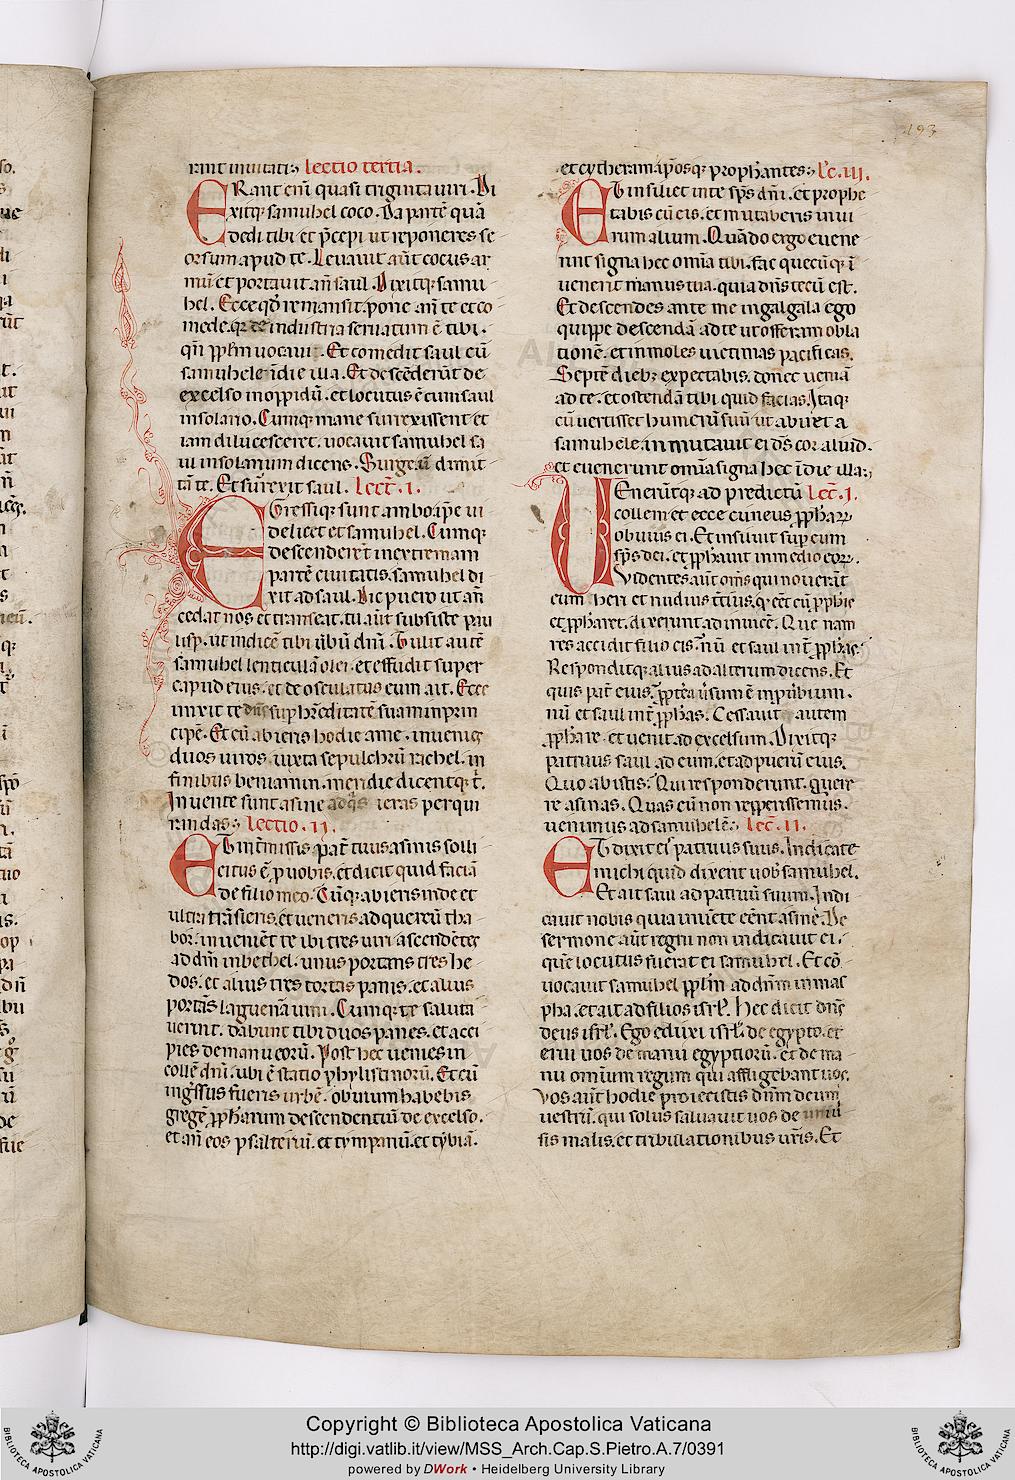 193
rant inuitati; Lectio tertia.
ERant eni quasi triginta uiri. Di
xitq; samuhel coco. Da parte qua
dedi tibi et pcepi ut reponeres se
orsum apud te. Leuauit aut cocus ar
mu et portauit an saul. Dixitq; samu
hel. Ecce qd remansit. pone an te et co
mede. qr de industria seruatum e tibi.
qn pplm uocaui. Et comedit saul cu
samuhele i die illa. Et descederut de
excelso in oppidu. et locutus e cum saul
in solario. Cumq; mane surrexissent et
iam dilucesceret. uocauit samuhel sa
ul in solarium dicens. Surge ut dimit
ta te. Et surrexit saul. Lect. I.
EGressiq; sunt ambo ipe ui
delicet et samuhel. Cumq;
descenderet in extremam
parte ciuitatis. samuhel di
xit ad saul. Dic puero ut an
cedat nos et transeat. tu aut subsiste pau
lisp. ut indice tibi ubu dni. Tulit aute
samuhel lenticula olei. et effudit super
capud eius. et deosculatus eum ait. Ecce
unxit te dns sup hreditate suam in prin
cipe. Et cu abieris hodie a me. inuenies
duos uiros. iuxta sepulchru rachel. in
finibus beniamin. meridie dicentq; t.
Inuente sunt asine ad qs ieras perqui
rindas; Lectio. II.
ET intmissis pat tuus asinis solli
citus e p uobis. et dicit quid facia
de filio meo. Cuq; abieris inde et
ultra transieris. et ueneris ad quercu tha
bor. inueniet te ibi tres uiri ascendetes
ad dm in bethel. unus portans tres he
dos. et alius tres tortas panis. et alius
portas laguena uini. Cumq; te saluta
uerint. dabunt tibi duos panes. et acci
pies de manu eoru. Post hec uenies in
colle dni. ubi e statio phylistinoru. Et cu
ingssus fueris urbe. obuium habebis
grege ppharum descendentiu de excelso.
et an eos psalteriu. et tympanu. et tybia.
et cythera ma iposq; prophantes; Lc. III.
ET insiliet in te sps dni. et prophe
tabis cu eis. et mutaberis in ui
rum alium. Quado ergo euene
rint signa hec omia tibi. fac quecuq; i
uenerit manus tua. quia dns tecu est.
Et descendes ante me in galgala ego
quippe descenda ad te ut offeram obla
tione. et inmoles uictimas pacificas.
Septe dieb; expectabis. donec uenia
ad te. et ostenda tibi quid facias. Itaq;
cu uertisset humeru suu ut abiret a
samuhele. inmutauit ei ds cor aliud.
et euenerunt omia signa hec i die illa;
UEnerutq; ad predictu Lect. I.
collem et ecce cuneus pphar
obuius ei. Et insiluit sup eum
sps dei. et pphauit in medio eor.
Videntes aut oms qui nouerat
eum heri et nudius ttius. q eet cu pphis
et ppharet. dixerunt ad inuice. Que nam
res accidit filio cis. nu et saul int pphas.
Responditq; alius ad alterum dicens. Et
quis pat eius. pptea uersum e in puibium.
nu et saul int pphas. Cessauit autem
pphare. et uenit ad excelsum. Dixitq;
patruus saul ad eum. et ad pueru eius.
Quo abistis. Qui responderunt. quere
re asinas. Quas cu non repperissemus.
uenimus ad samuhele; Lec. II.
ET dixit ei patruus suus. Indica te
michi quid dixerit uob samuhel.
Et ait saul ad patruu suum. Indi
cauit nobis quia inuete eent asine. De
sermone aut regni non indicauit ei.
que locutus fuerat ei samuhel. Et co
uocauit samuhel pplm ad dnm in mas
pha. et ait ad filios isrl. Hec dicit dns
deus isrl. Ego eduxi isrl de egypto. et
erui uos de manu egyptioru. et de ma
nu omium regum qui affligebant uos.
Vos aut hodie proiecistis dnm deum
uestru. qui solus saluauit uos de uniu
sis malis. et tribulationibus uris. Et
Copyright © Biblioteca Apostolica Vaticana
http://digi.vatlib.it/view/MSS_Arch.Cap.S.Pietro.A.7/0391
powered by DWork • Heidelberg University Library
BIBLIOTECA APOSTOLICA VATICANA
BIBLIOTECA APOSTOLICA VATICANA